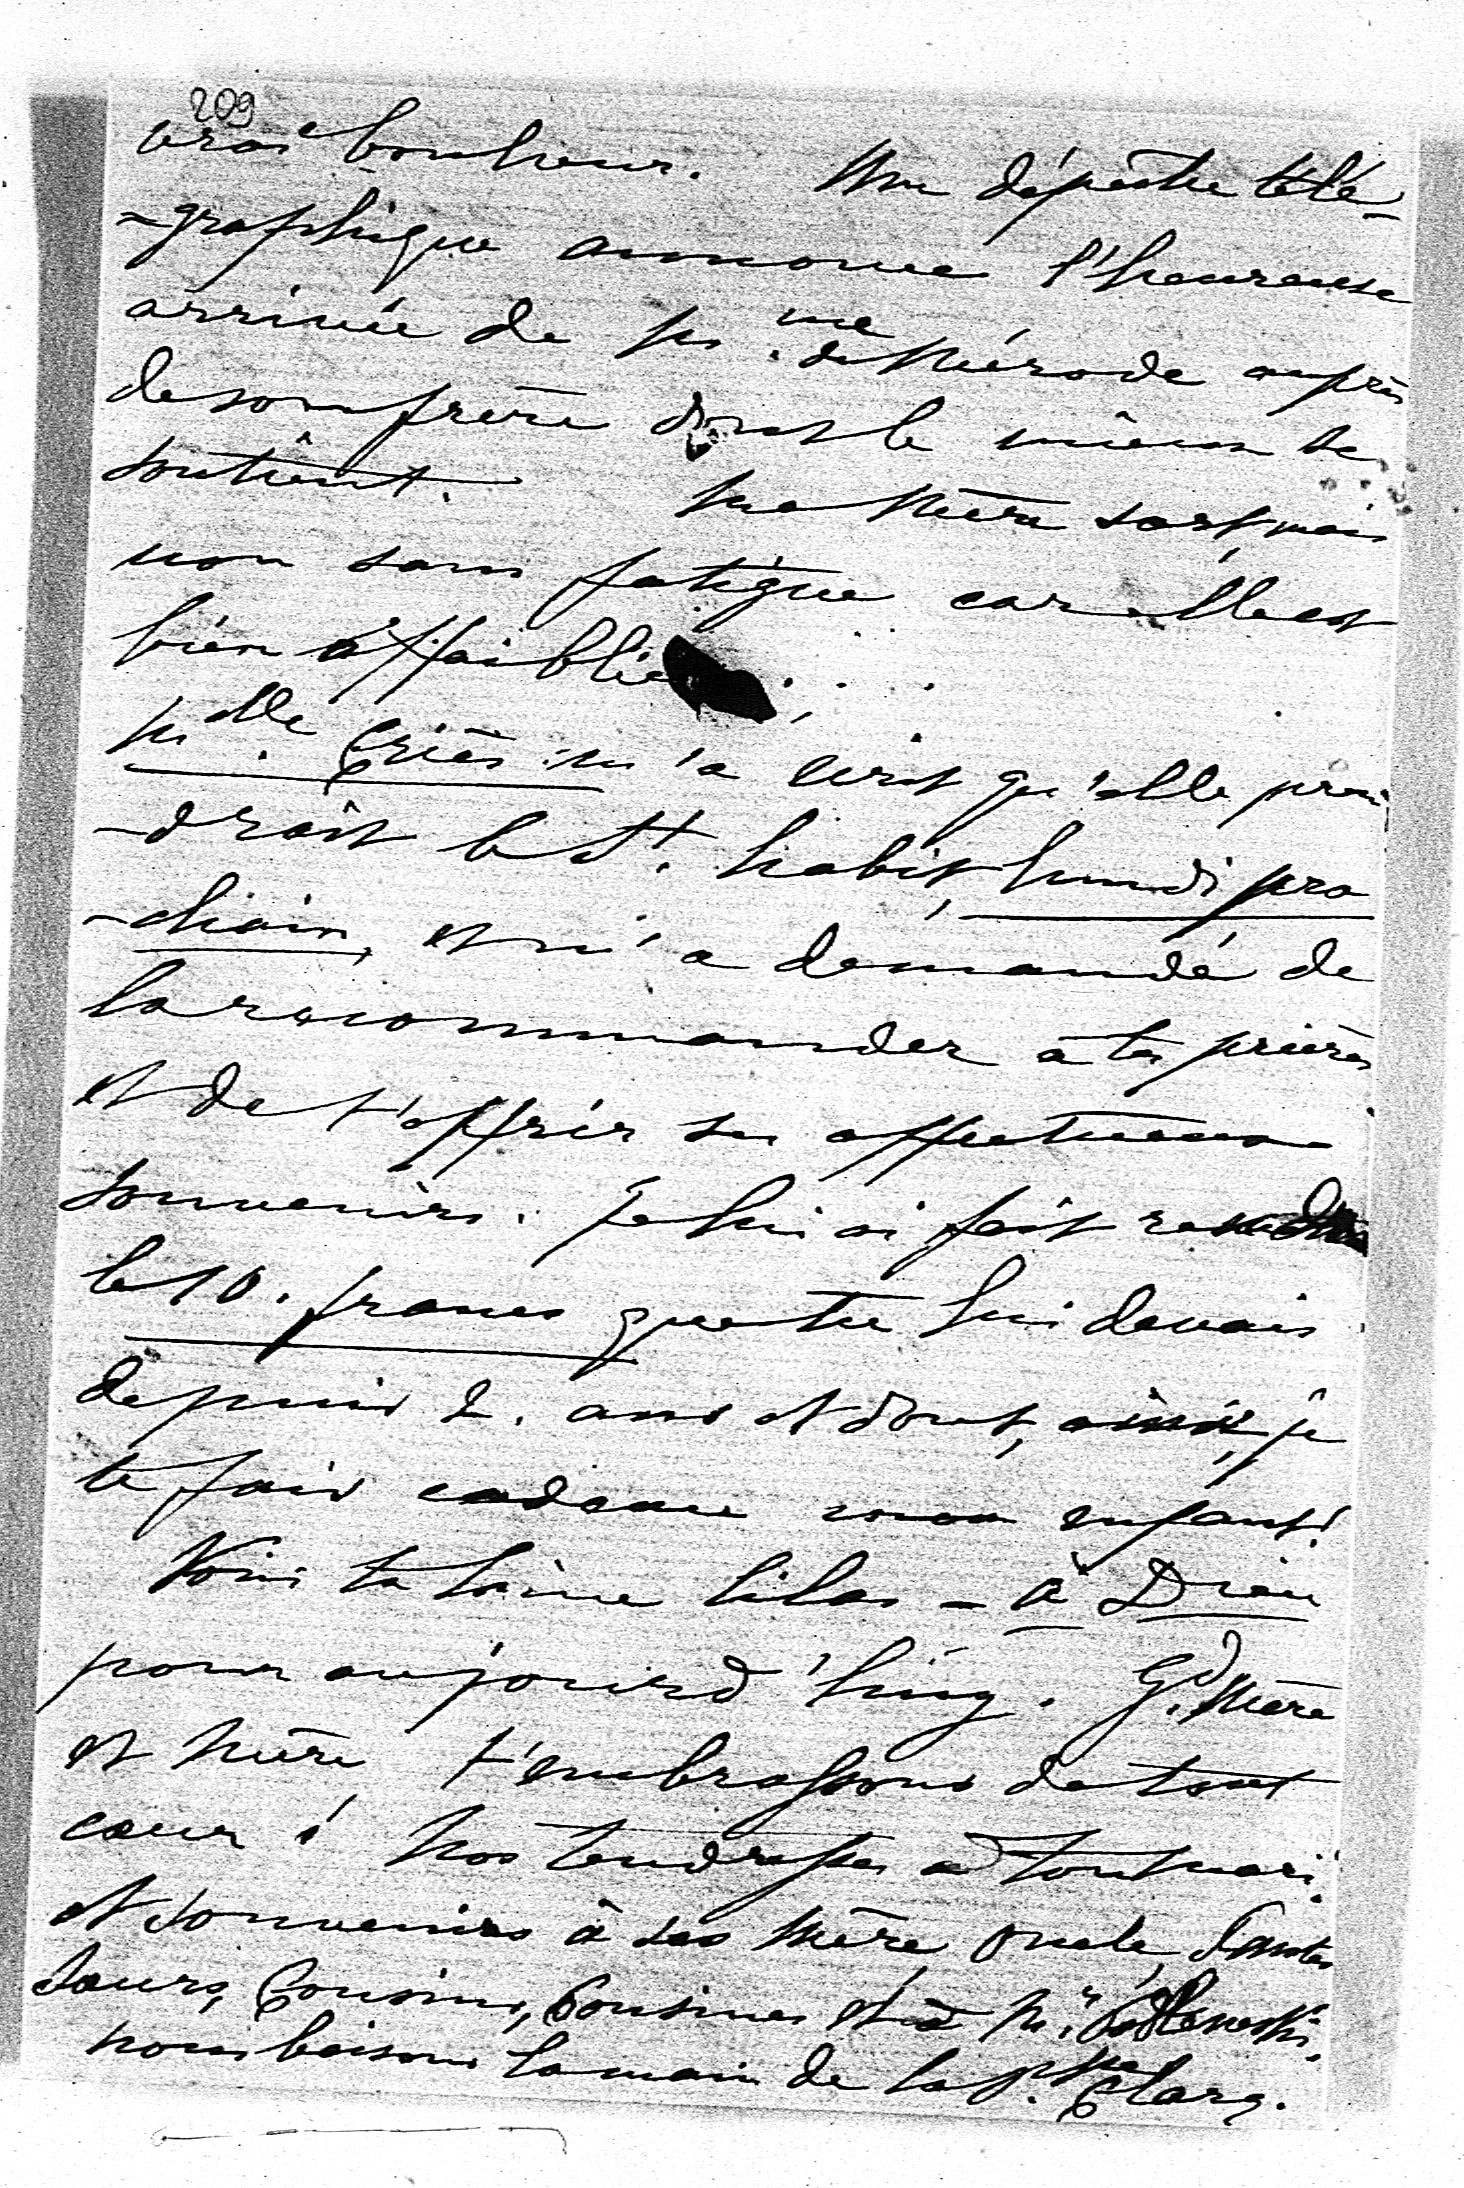 209
vrai bonheur. Une dépêche télé-
-graphique annonce l'heureuse
arrivée de M.me de Mérode auprès
de son frère dont le mieux se
soutient. Ma Mère sort, mais
non sans fatigue car elle est
bien affaiblie
M.elle Criès m'a écrit qu'elle pren-
-drait le St. habit, lundi pro
-chain, et m'a demandé de
la recommander à tes prières
et de t'offrir ses affectueux
souvenirs. Je lui ai fait
les 10. francs que tu lui devais
depuis 2. ans et dont, ainsi, je
te fais cadeau mon enfant!
Voici ta laine lilas - à Dieu
pour aujourd'huy. Gd. Mère
et Mère, t'embrassons de tout
cœur! Nos tendresses à ton mari
et souvenirs à ses Mère, Oncle, Tantes
Sœurs, Cousins, Cousines et à Mr.
nous baisons la main de la Psse Clary.